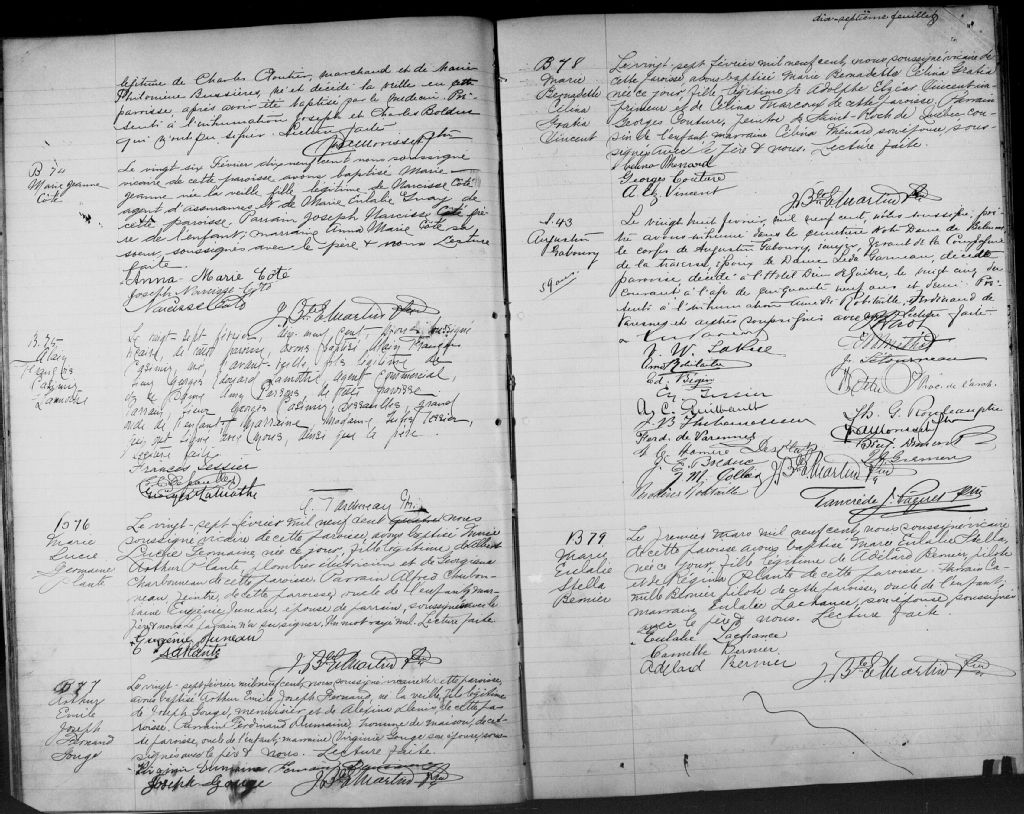 légitime de Charles Cloutier, marchand et de Marie
Philomène Bussières, né et décédé la veille en cette
paroisse, après avoir été baptisé par le médecin. Pré-
sents à l'inhumation Joseph et Charles Bolduc
qui n'ont pu signer. Lecture faite
B 74
Marie Jeanne
Côté
Le vingt six Février dix neuf cent nous soussigné
vicaire de cette paroisse avons baptisé Marie-
Jeanne née la veille fille légitime de Narcisse Côté
agent d'assurances et de Marie Eulalie Guay de
cette paroisse Parrain Joseph Narcisse Côté frè-
re de l'enfant; marraine Anna Marie Côté sa
soeur, soussignés avec le père & nous. Lecture
faite
Anna-Marie Coté
Joseph Narcisse Coté
Narcisse Coté
J. Bte E. Martin Ptre
B. 75
Alain
François
Casimir
Lamothe
Le vingt-sept février, dix-neuf cent, nous soussigné
vicaire de cette paroisse, avons baptisé, Alain François
Casimir, né, l'avant-veille, fils légitime de
sieur Georges Edouard Lamothe, agent commercial,
et de Dame de cette paroisse
Parrain, sieur Georges Casimir Dessaulles, grand
oncle de l'enfant, Marraine, madame Tessier,
qui ont signé avec nous, ainsi que le père.
Lecture faite
Frances Tessier
G. C. Dessaulles
Georges Lamothe
B 76
Marie
Lucie
Germaine
Plante
Le vingt-sept février mil neuf cent nous
soussigné vicaire de cette paroisse avons baptisé Marie
Lucie Germaine née ce jour, fille légitime de
Arthur Plante, plombier électricien et de Georgiana
Charbonneau de cette paroisse. Parrain Alfred Charbon-
neau, peintre, de cette paroisse, oncle de l'enfant; mar-
raine Eugénie Juneau, épouse du parrain, soussignée avec le
père & nous. Le parrain n'a su signer. Un mot rayé nul. Lecture faite
Eugénie Juneau
J. Bte E. Martin Ptre
B 77
Arthur
Emile
Joseph
Fernand
Gouge
Le vingt-sept février mil neuf cent, nous soussigné vicaire de cette paroisse,
avons baptisé Arthur Emile Joseph Fernand, né la veille, fils légitime
de Joseph Gouge, menuisier et de Alexina de cette pa-
roisse. Parrain Ferdinand Dumaine, homme de maison, de cet-
te paroisse, oncle de l'enfant, marraine Virginie Gouge son épouse, sous-
signés avec le père & nous. Lecture faite
Virginie Dumaine
Joseph Gouge
J. Bte E. Martin Ptre
dix-septième feuillet
B 78
Marie
Bernadette
Célina
Gratia
Vincent
Le vingt sept février mil neuf cent, nous soussigné vicaire de
cette paroisse avons baptisé Marie Bernadette Célina Gratia
née ce jour, fille légitime de Adolphe Elzéar Vincent im-
primeur et de Célina Marcoux de cette paroisse, Parrain
Georges Couture, peintre de Saint-Roch de Québec cou-
sin de l'enfant marraine Célina Ménard son épouse, sous-
signés avec le père & nous. Lecture faite.
Célina Menard
Georges Couture
A. Elz. Vincent
J. Bte E. Martin Ptre
S. 43
Augustin
Gaboury
59 ans
Le vingt huit février, mil neuf cent, nous soussigné, prê-
tre avons inhumé dans le cimetière Notre Dame de Belmont
le corps de Augustin Gaboury, gérant de la Compagnie
de la traverse, époux de Dame Léda Garneau, de cette
paroisse, décédé à l'Hôtel Dieu de Québec, le vingt cinq du
courant à l'âge de cinquante neuf ans et demi. Pré-
sents à l'inhumation Amédée Robitaille, Ferdinand de
Varennes et autres soussignés avec nous. Lecture faite
N. W. LaRue
Ed. Bégin
Cy. Tessier
J. Letourneau
A. C. Guilbault
Ferd. de Varennes
J. Bte E. Martin Ptre
Tancrède J. Paquet Ptre
B 79
Marie
Eulalie
Stella
Bernier
Le premier mars mil neuf cent, nous soussigné vicaire
de cette paroisse avons baptisé Marie Eulalie Stella,
née ce jour, fille légitime de Adélard Bernier, pilote
et de Régina Plante de cette paroisse. Parrain Ca-
mille Bernier pilote de cette paroisse, oncle de l'enfant,
marraine Eulalie Lachance, son épouse soussignés
avec le père & nous. Lecture faite
Eulalie Lachance
Camille Bernier
Adelard Bernier
J. Bte E. Martin Ptre